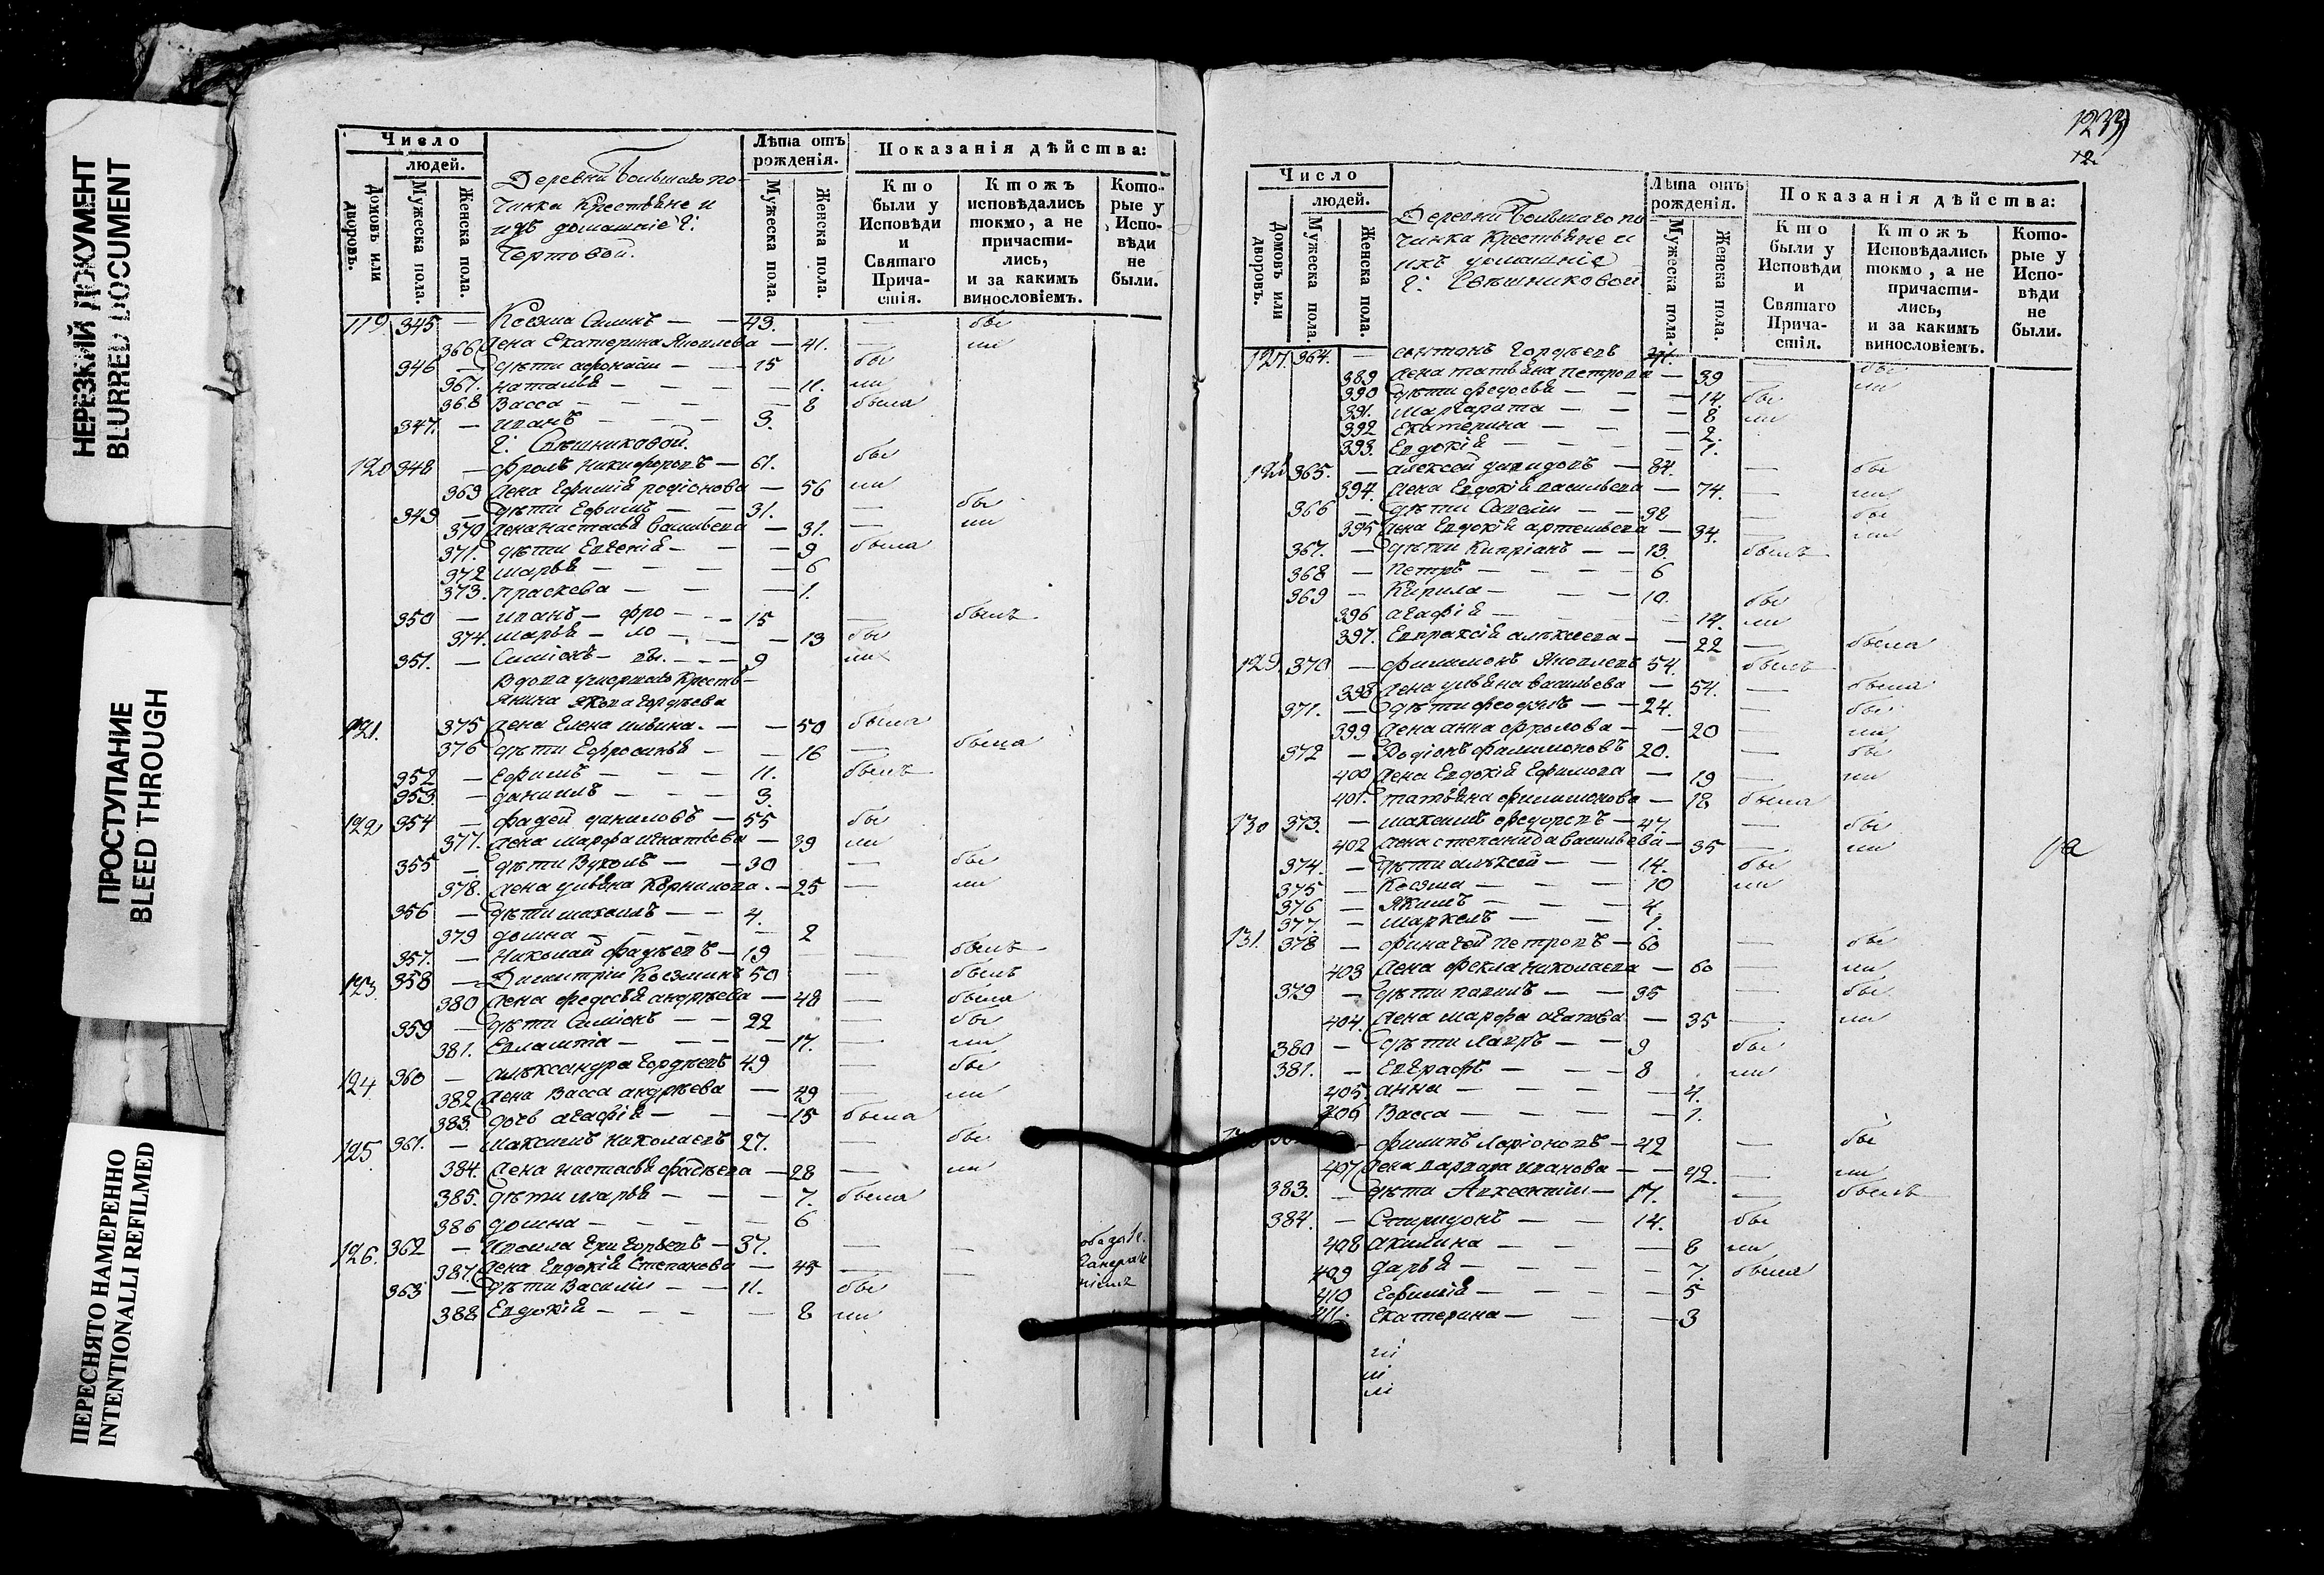 НЕРЕЗКИЙ ДОКУМЕНТ
BLURRED DOCUMENT
ПРОСТУПАНИЕ
BLEED THROUGH
ПЕРЕСНЯТО НАМЕРЕННО
INTENTIONALLI REFILMED
Число
людей.
Домовъ или дворовъ.
Мужеска пола.
Женска пола.
Деревни Большаго по-
чинка крестьяне и
ихъ домашніе г:
Чертовой.
Лѣта отъ рожденія.
Мужеска пола.
Женска пола.
Показанія дѣйства:
Кто были у Исповѣди и Святаго Прича-стія.
Ктожъ исповѣдались токмо, а не причасти-лись, и за какимъ винословіемъ.
Кото-рые у Испо-вѣди не были.
119. 345 — Козма Силинъ — — 43. — бы
366 жена Екатерина Яковлева — 41. — ли
346 — дѣти — — 15 бы
367. наталья — — — — 11. ли
368 Васса — — — — 8 была
347. — иванъ — — — 3.
г: Свѣшниковой.
120 348 — фролъ никифоровъ — 61. бы
369 жена Ефимія родіонова — 56 ли
349 — дѣти Ефимъ — — 31. — бы
370 жена настасья Васильева — 31. — ли
371. дѣти Евгенія — — — 9 была
372 марья — — — — 6
373. праскева — — — 1.
350 — иванъ — фро — — 15 — былъ
374. марья — ло — — — 13 бы
351. — Симіонъ — вы. — — 9 ли
вдова умершаго крестья-
янина Якова гордѣева
121. 375 жена Елена ильина. — — 50 была
376 дѣти Ефросинья — — 16 — была
352 — Ефимъ — — — 11. былъ
353. — данилъ — — — 3.
122 354 — фадей даниловъ — 55 бы
377. жена марфа игнатьева — 39 ли
355 — дѣти Вуколъ — — 30 — бы
378. жена ульяна Корнилова. — 25 — ли
356 — дѣти максимъ — — 4.
379 домна — — — — 2
357. — николай фадѣевъ — 19 — былъ
123. 358 — Димитрій Козминъ 50 — былъ
380 жена федосья андрѣева — 48 — была
359 — дѣти Симіонъ — — 22 — бы
381. Евлампіа — — — — 17. — ли
124 360 — александра гордѣевъ 49 — бы
382 жена Васса андрѣева — 49 — ли
383. дочь агафія — — — 15 была
125. 361. — максимъ николаевъ 27. — бы
384. жена настасья фадѣева — 28 — ли
385. дѣти марья — — — 7. была
386 домна — — — — 6
126. 362 — григорьевъ — 37. — —
387. жена Евдокія Степанова — 45 — —
363 — дѣти Василій — — 11. бы
388 Евдокія — — — — 8 ли
1233
12.
Число
людей.
Домовъ или дворовъ.
Мужеска пола.
Женска пола.
Деревни Большаго по
чинка крестьяне и
ихъ домашніе
г: Свѣшниковой
Лѣта отъ рожденія.
Мужеска пола.
Женска пола.
Показанія дѣйства:
Кто были у Исповѣди и Святаго Прича-стія.
Ктожъ Исповѣдались токмо, а не причасти-лись, и за какимъ винословіемъ.
Кото-рые у Испо-вѣди не были.
127. 364. — антонъ гордѣевъ — бы
389 жена татьяна петрова — 39 — ли
390 дѣти федосья — — — 14. бы
391. маргарита — — — 8 ли
392 Екатерина — — — 2.
393. Евдокія — — — — 1.
128 365. — алексей давидовъ — 84. — бы
394. жена Евдокія васильева — 74. — ли
366 — дѣти Савелій — — 38 — бы
395 жена Евдокія артемьева — 34. — ли
367. — дѣти Кипріанъ — — 13. былъ
368 — петръ — — — — 6
369 — Кирила — — — 10. бы
396 агафія — — — — 14. ли
397. Евпраксія алексеева — — 22 — была
129. 370 — филимонъ Яковлевъ 54. былъ
398 жена ульяна васильева — 54. — была
371. — дѣти феодулъ — — 24. — бы
399 жена анна фролова — — 20 — ли
372 — Родіонъ филимоновъ 20. — бы
400 жена Евдокія Ефимова — 19 — ли
401. татьяна филимонова — 18 была
130 373. — максимъ федоровъ — 47 — бы
402 жена степанида васильева — 35 — ли
374. — дѣти алексей — — 14. бы
375 — Козма — — — 10 ли
376 — Якимъ — — — 4.
377. — маркелъ — — 1.
131. 378 — финагей петровъ — 60 — бы
403 жена фекла николаева — 60 — ли
379 — дѣти павилъ — — 35 — бы
404. жена марфа агапова — 35 — ли
380 — дѣти лавръ — — 9 бы
381. — Евграфъ — — — 8 ли
405 анна — — — — 4.
406 Васса — — — — 1.
— филипъ ларіоновъ — 42 — бы
407 жена варвара иванова — — 42. — ли
383. — дѣти — 17. — былъ
384. — Спиридонъ — — 14. бы
408 акилина — — — 8 ли
409 дарья — — — — 7. была
410 Ефимія — — — — 5
411. Екатерина — — — 3